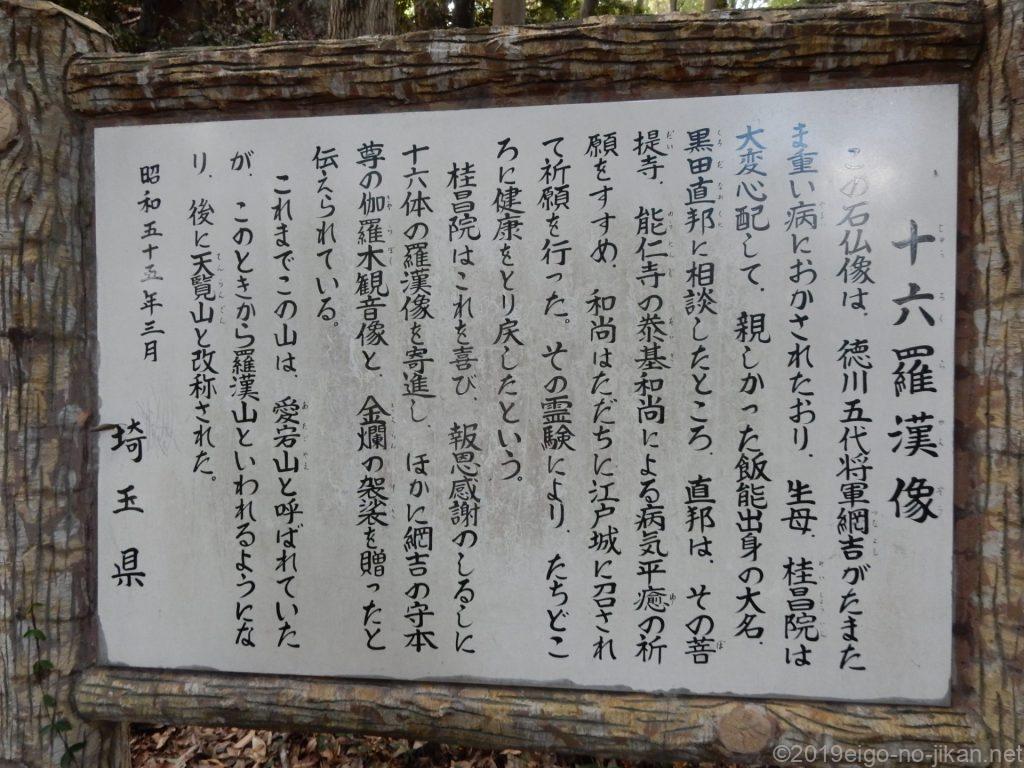 十六羅漢像
この石仏像は、徳川五代将軍綱吉がたまた
ま重い病におかされたおり、生母、桂昌院は
大変心配して、親しかった飯能出身の大名、
黒田直邦に相談したところ、直邦は、その菩
提寺、能仁寺の泰基和尚による病気平癒の祈
願をすすめ、和尚はただちに江戸城に召され
て祈願を行った。その霊験により、たちどこ
ろに健康をとり戻したという。
桂昌院はこれを喜び、報恩感謝のしるしに
十六体の羅漢像を寄進し、ほかに綱吉の守本
尊の伽羅木観音像と、金爛の袈裟を贈ったと
伝えられている。
これまでこの山は、愛宕山と呼ばれていた
が、このときから羅漢山といわれるようにな
り、後に天覧山と改称された。
昭和五十五年三月
埼玉県
©2019eigo-no-jikan.net